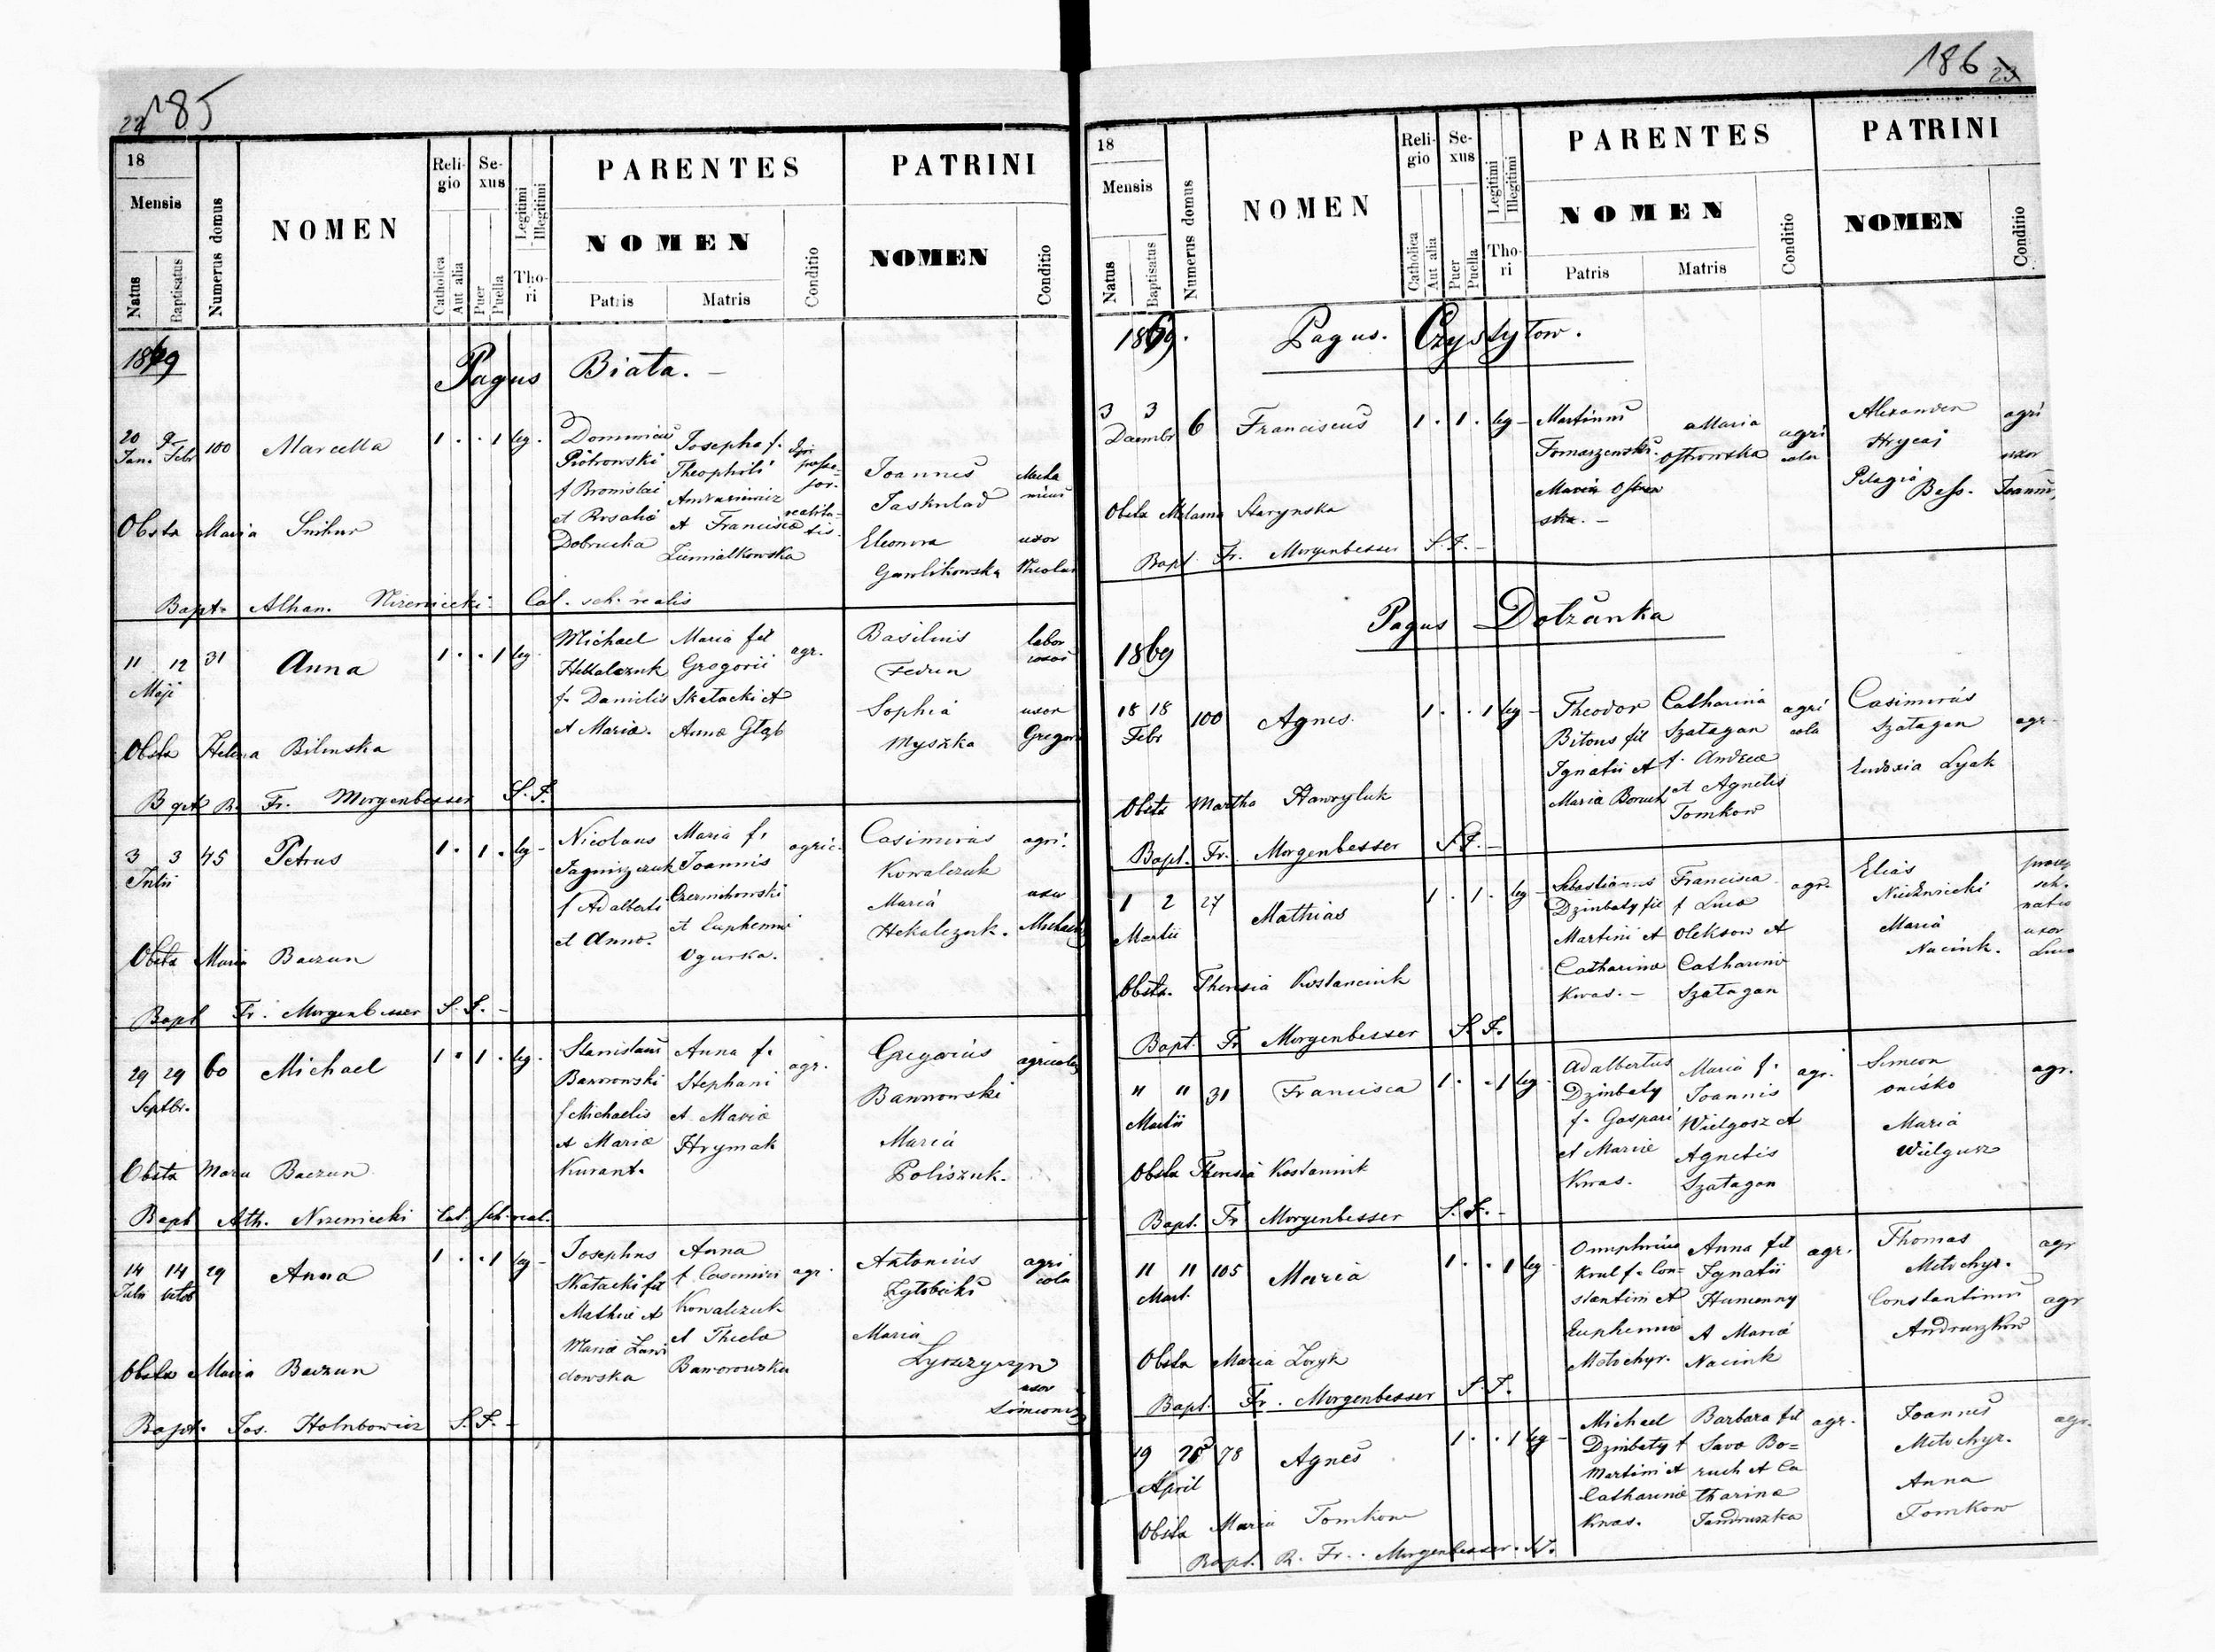 22 185
18
Mensis
Natus
Baptisatus
Numerus domus
NOMEN
Religio
Catholica
Aut alia
Sexus
Puer
Puella
Legitimi
Illegitimi
Thori
PARENTES
NOMEN
Patris
Matris
Conditio
PATRINI
NOMEN
Conditio
1869
Pagus Biała. –
20 Jan. 9 Febr 100 Marcella 1 . . 1 leg.
Dominicus
Piotrowski
f Bromislai
et Rosaliæ
Dobrucka
Josepha f.
Theophili
et Francisca
Ziemialkowska
Joannes
Eleonora
Gawlikowska
uxor
Obsta Maria Snihur
Bapt. Athan. Cat. sch. realis
11 12 31 Anna 1 . . 1 leg
Maji
Michael
f. Danielis
et Mariæ.
Maria fil
Gregorii
Skalacki et
Annæ Głąb
agr.
Basilius
Fedun
Sophia
Myszka
uxor
Obsta Helena Bilinska
Bapt R. Fr. Morgenbesser S. J.
3 3 45 Petrus 1 . 1 . leg –
Julii
Nicolaus
f Adalberti
et Annæ.
Maria f.
Joannis
et Euphemiæ
Ogurska.
agric.
Casimirus
Kowalczuk
Maria
Hekalczuk.
agri.
Obsta Maria Baczun
Bapt Fr. Morgenbesser S. J. –
29 29 60 Michael 1 . 1 . leg.
Septbr.
Stanislaus
Baworowski
f Michaelis
et Mariæ
Kurant.
Anna f.
Stephani
et Mariæ
Hrymak
agr.
Gregorius
Maria
Poliszuk.
agricola
Obsta Maria Baczun
Bapt Ath. Cat. sch. real.
14 14 29 Anna 1 . . 1 leg –
Josephus
Skalacki fil
Mathiæ et
Mariæ Zawi
dowska
Anna
f Casimiri
Kowalczuk
et Theclæ
agr.
Antonius
Maria
agri
cola
uxor
Simeonis
Obsta Maria Baczun
Bapt. Jos. Holubowicz S. J. –
186 23
18
Mensis
Natus
Baptisatus
Numerus domus
NOMEN
Religio
Catholica
Aut alia
Sexus
Puer
Puella
Legitimi
Illegitimi
Thori
PARENTES
NOMEN
Patris
Matris
Conditio
PATRINI
NOMEN
Conditio
1869. Pagus. Czystyłow.
3 3 6 Franciscus 1 . 1 . leg –
Decembr
Martinus
Maria
Ostrowska
agri
cola
Alexander
Hrycaj
Pelagia Bess.
agri
uxor
Joannis
Obsta Melania Starynska
Bapt. Fr. Morgenbesser S. J. –
Pagus Dołżanka
1869
18 18 100 Agnes. 1 . . 1 leg –
Febr
Theodor
Bitous fil
Ignatii et
Mariæ Boruch
Catharina
Szatagan
f. Andreæ
et Agnetis
Tomkow
agri
cola
Casimirus
Szatagan
Eudoxia Lyak
agr
Obsta Martha Hawryluk
Bapt. Fr. Morgenbesser S. J. –
1 2 27 Mathias 1 . 1 . leg –
Martii
Sebastianus
Dzinbaty fil
Martini et
Catharinæ
Kwas. –
Francisca
f Lucæ
Oleksow et
Catharinæ
Szatagan
agr.
Elias
Maria
Naciuk.
uxor
Lucæ
Obsta. Theresia Kostaneiuk
Bapt. Fr Morgenbesser S. J.
" " 31 Francisca 1 . . 1 leg
Martii
Adalbertus
Dzinbaty
f. Gaspari
et Mariæ
Kwas.
Maria f.
Joannis
Wielgosz et
Agnetis
Szatagan
agr.
Simeon
Onisko
Maria
Wielgusz
agr.
Obsta Theresia
Bapt. Fr Morgenbesser S. J. –
11 11 105 Maria 1 . . 1 leg
Mart.
Onuphrius
Krul f. Con=
stantini et
Euphemiæ
Metochyr.
Anna fil
Ignatii
Humenny
et Mariæ
Naciuk
agr.
Thomas
Metochyr.
Constantinus
Andruszkow
agr
agr
Obsta Maria Zoryk
Bapt. Fr. Morgenbesser S. J.
19 78 Agnes 1 . . 1 leg –
April
Michael
Dzinbaty f
Martini et
Catharinæ
Kwas.
Barbara fil
Savæ Bo=
ruch et Ca
tharinæ
Jandruszka
agr.
Joannes
Metochyr.
Anna
Tomkow
agr.
Obsta Maria Tomkow
Bapt. R. Fr. Morgenbesser. S. J.